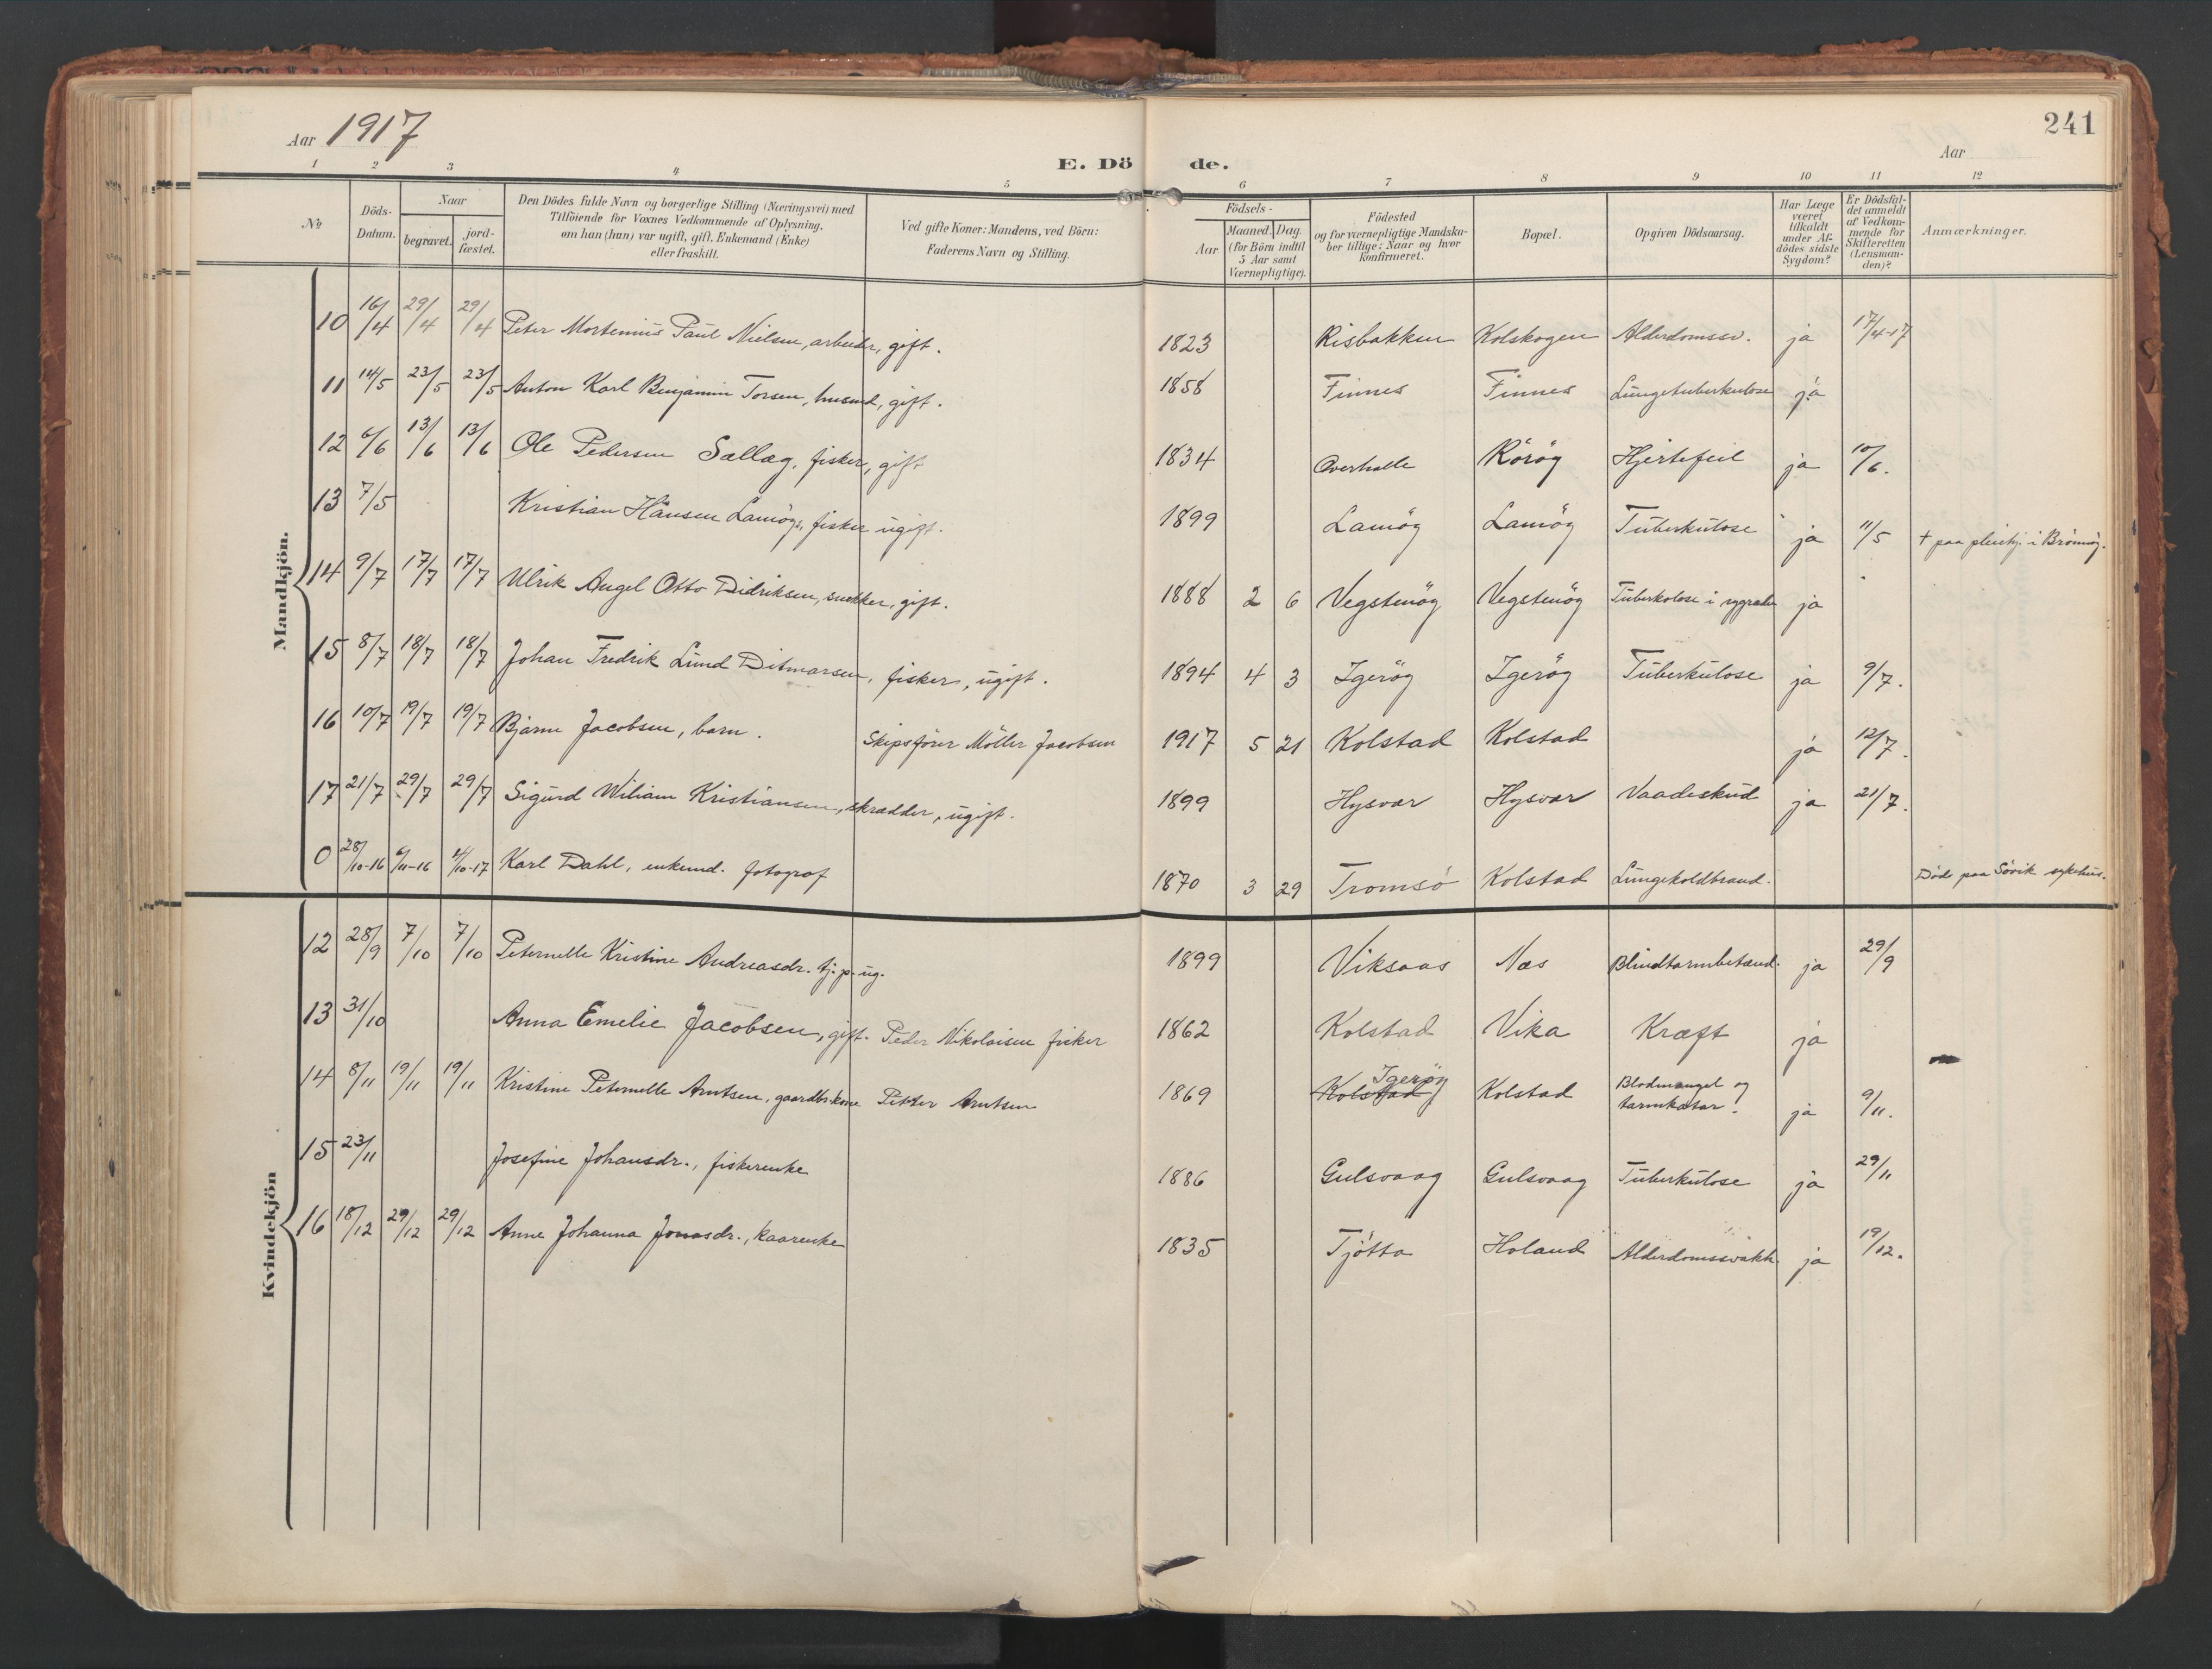 Aar 1917
241
Aar
E. Dö de.
1 2 3 4 5 6 7 8 9 10 11 12
No
Döds-Datum.
Naar
begravet.
jord-fæstet.
Den Dödes fulde Navn og borgerlige Stilling (Næringsvei) med
Tilföiende for Voxnes Vedkommende af Oplysning,
om han (hun) var ugift, gift, Enkemand (Enke)
eller fraskilt.
Ved gifte Koner: Mandens, ved Börn:
Faderens Navn og Stilling.
Födsels-
Aar
Maaned. Dag.
(for Börn indtil
5 Aar samt
Værnepligtige).
Födested
og for værnepligtige Mandska-
ber tillige: Naar og hvor
konfirmeret.
Bopæl.
Opgiven Dödsaarsag.
Har Læge
været
tilkaldt
under Af-
dödes sidste
Sygdom?
Er Dödsfal-
det anmeldt
af Vedkom-
mende for
Skifteretten
(Lensman-
den)?
Anmærkninger.
Mandkjön.
10 16/4 29/4 29/4 Peter Mortenius Paul Nielsen, arbeider, gift. 1823 Risbakken Kolskogen Alderdomssv. ja 17/4-17
11 14/5 23/5 23/5 Anton Karl Benjamin Torsen, husmd, gift. 1858 Finnes Finnes Lungetuberkulose ja
12 6/6 13/6 13/6 Ole Pedersen Sællæg, fisker, gift 1834 Overhalle Rörög Hjertefeil ja 10/6.
13 7/5 Kristian Hansen Lamög, fisker ugift. 1899 Lamög Lamög Tuberkulose ja 11/5 + paa pleiehj. i Brönnög.
14 9/7 17/7 17/7 Ulrik Angel Otto Didriksen, snekker, gift. 1888 2 6 Vegstenög Vegstenög Tuberkolose i rygraden ja
15 8/7 18/7 18/7 Johan Fredrik Lund Ditmarsen, fisker, ugift. 1894 4 3 Igerög Igerög Tuberkulose ja 9/7.
16 10/7 19/7 19/7 Bjarne Jacobsen, barn. Skipsförer Möller Jacobsen 1917 5 21 Kolstad Kolstad ja 12/7.
17 21/7 29/7 29/7 Sigurd Wiliam Kristiansen, skrædder, ugift. 1899 Hysvær Hysvær Vaadeskud ja 21/7.
0 28/10-16 6/11-16 4/10-17 Karl Dahl, enkemd. fotograf 1870 3 29 Tromsö Kolstad Lungekoldbrand. Döde paa Sövik sykehus.
Kvindekjön
12 28/9 7/10 7/10 Peternelle Kristine Andreasdr. tj.p. ug. 1899 Viksaas Næs Blindtarmbetænd. ja 29/9
13 31/10 Anna Emelie Jacobsen, gift. Peder Nikolaisen fisker 1862 Kolstad Vika Kræft ja
14 8/11 19/11 19/11 Kristine Peternelle Arntsen, gaardbr.kone Petter Arntsen 1869 Kolstad Igerög Kolstad Blodmangel og tarmkatar! ja 9/11.
15 23/11 Josefine Johansdr., fiskerenke 1886 Gulsvaag Gulsvaag Tuberkulose ja 29/11
16 18/12 29/12 29/12 Anne Johanna Jonasdr., kaarenke 1835 Tjötta Holand Alderdomssvakh. ja 19/12.